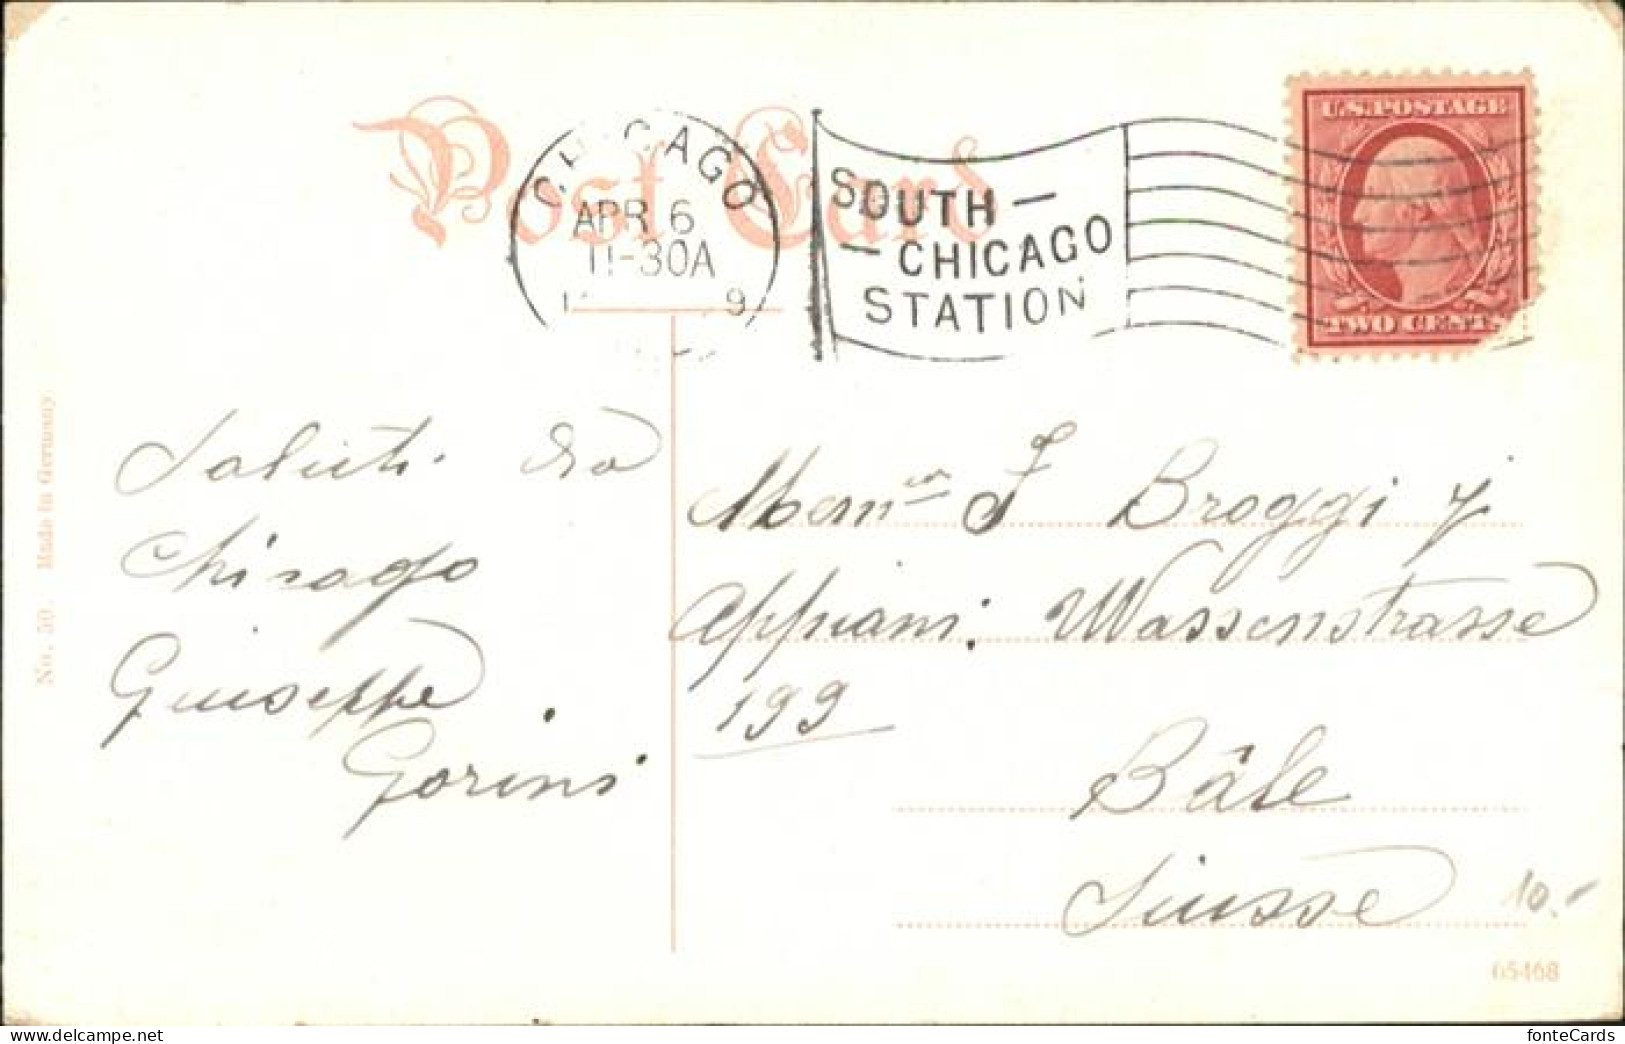 Post Card
CHICAGO
APR 6
11-30A
9
SOUTH —
— CHICAGO
STATION
U.S. POSTAGE
TWO CENTS
Saluti da
Chicago
Giuseppe
Gorini
F Broggi
Appiani. Wassenstrasse
199
Bâle
Suisse
10.-
No. 50. Made in Germany
65468
fonteCards